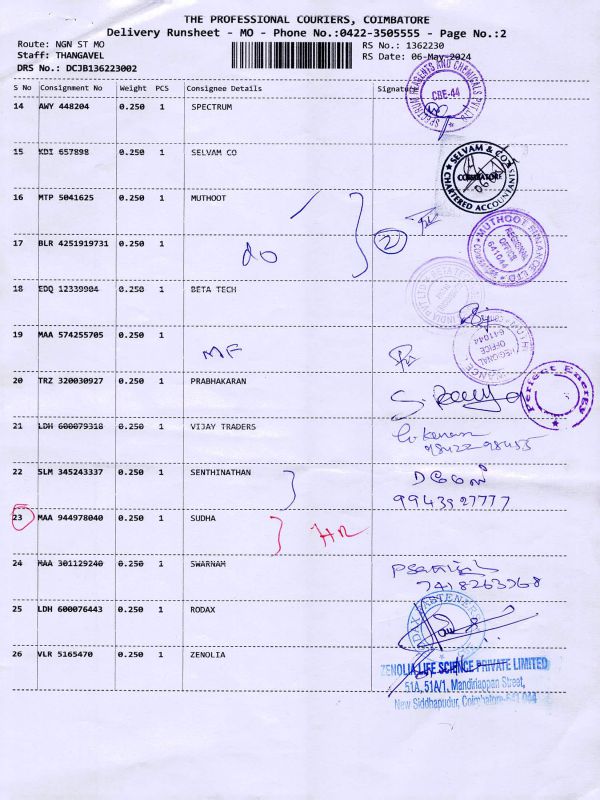 THE PROFESSIONAL COURIERS, COIMBATORE
Delivery Runsheet - MO - Phone No.:0422-3505555 - Page No.:2
Route: NGN ST MO
RS No.: 1362230
Staff: THANGAVEL
RS Date: 06-May-2024
DRS No.: DCJB136223002
S No Consignment No Weight PCS Consignee Details Signature
14 AWY 448204 0.250 1 SPECTRUM
SPECTRUM REAGENTS AND CHEMICALS PVT LTD
CBE-44
15 KDI 657898 0.250 1 SELVAM CO
SELVAM & CO.
COIMBATORE
CHARTERED ACCOUNTANTS
16 MTP 5041625 0.250 1 MUTHOOT
17 BLR 4251919731 0.250 1
do
2
MUTHOOT FINANCE LTD
REGIONAL OFFICE
641044
18 EDQ 12339904 0.250 1 BETA TECH
19 MAA 574255705 0.250 1
MF
REGIONAL OFFICE
641044
20 TRZ 320030927 0.250 1 PRABHAKARAN
Perfect Energy
21 LDH 600079318 0.250 1 VIJAY TRADERS
22 SLM 345243337 0.250 1 SENTHINATHAN
9943927777
23 MAA 944978040 0.250 1 SUDHA
24 MAA 301129240 0.250 1 SWARNAM
7418263768
25 LDH 600076443 0.250 1 RODAX
RODAX FASTENERS
26 VLR 5165470 0.250 1 ZENOLIA
ZENOLIA LIFE SCIENCE PRIVATE LIMITED
51A, 51A/1, Mandiriappan Street,
New Siddhapudur, Coimbatore-641 044